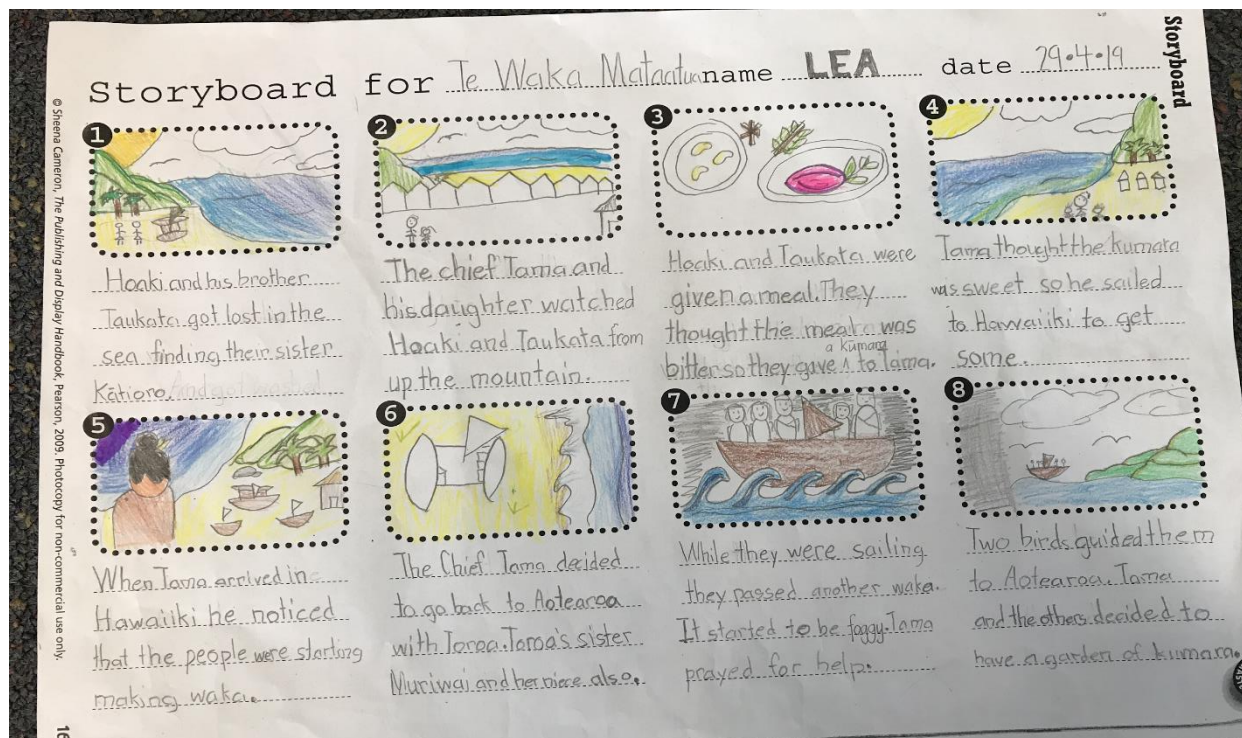 Storyboard for Te Waka Mataatua name LEA date 29.4.19
Storyboard
© Sheena Cameron, The Publishing and Display Handbook, Pearson, 2009. Photocopy for non-commercial use only.
1
Hoaki and his brother
Taukata got lost in the
sea finding their sister
Kātioro.
2
The chief Tama and
his daughter watched
Hoaki and Taukata from
up the mountain.
3
Hoaki and Taukata were
given a meal. They
thought the meal was
a Kumara
bitter so they gave ^ to Tama.
4
Tama thought the kumara
was sweet so he sailed
to Hawaiiki to get
some.
5
When Tama arrived in
Hawaiiki he noticed
that the people were starting
making waka.
6
The Chief Tama decided
to go back to Aotearoa
with Toroa. Toroa's sister
Muriwai and her niece also.
7
While they were sailing
they passed another waka.
It started to be foggy. Tama
prayed for help.
8
Two birds guided them
to Aotearoa. Tama
and the others decided to
have a garden of kumara.